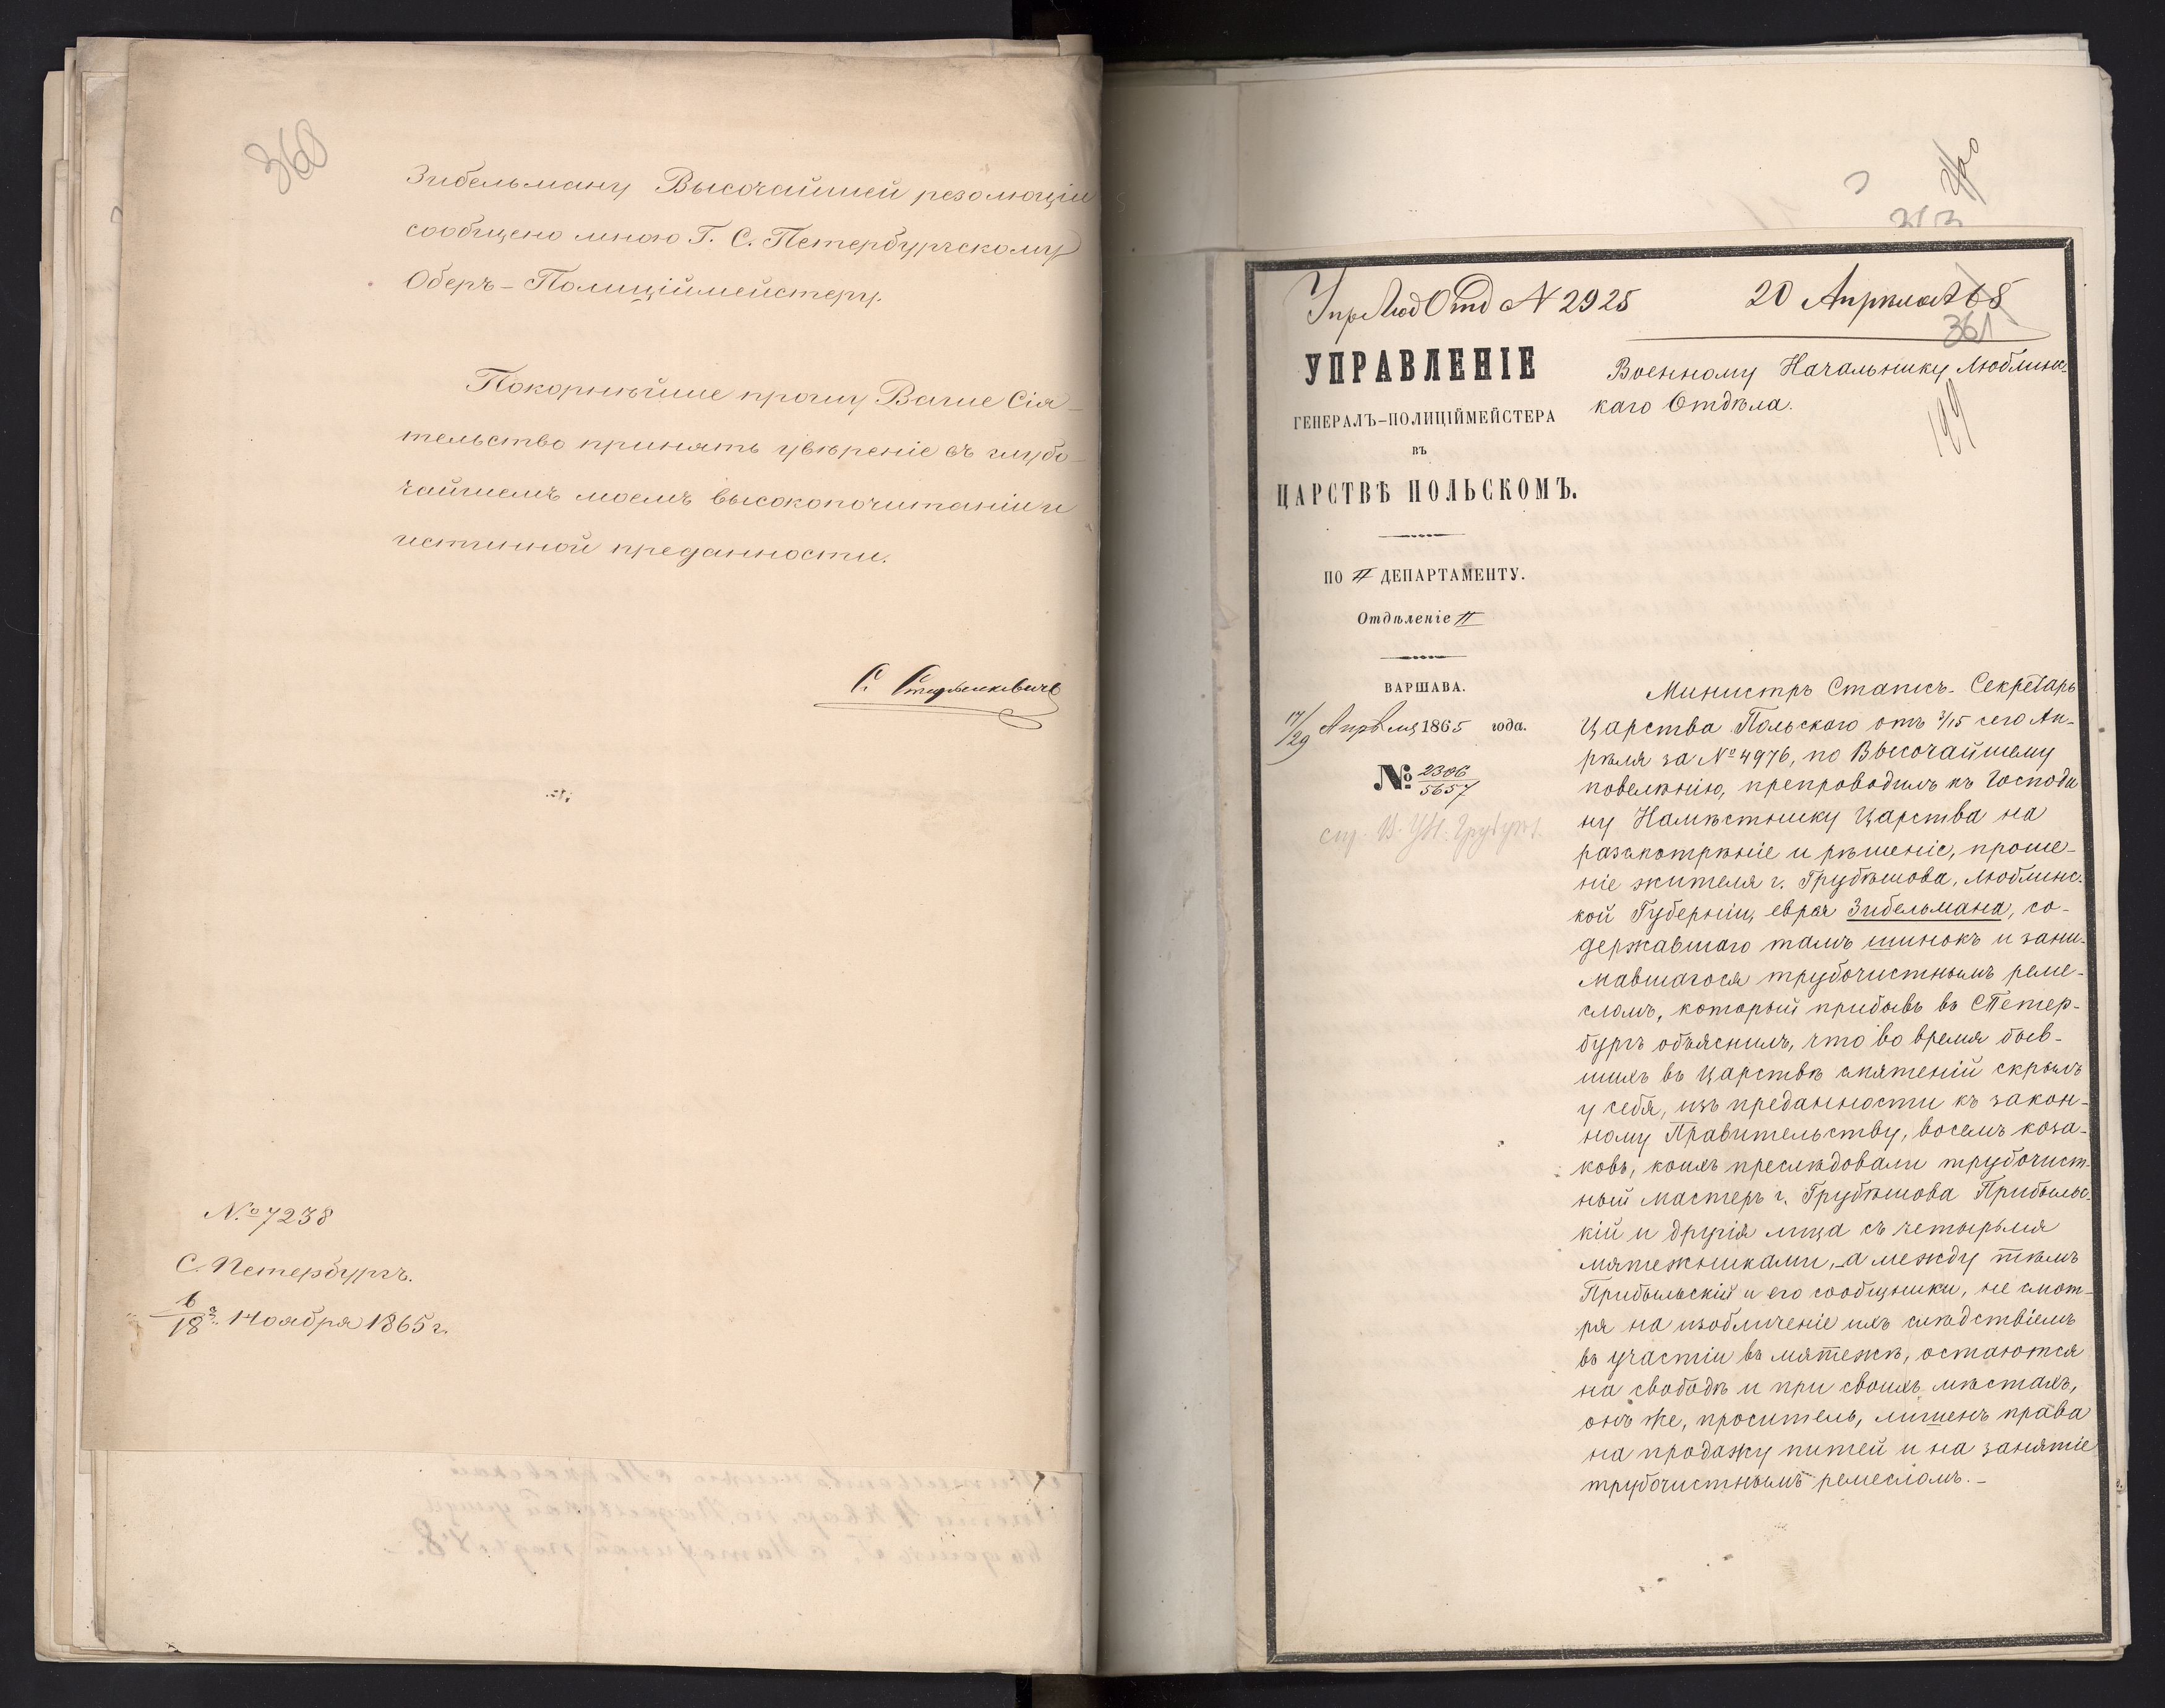 360
Зибельману Высочайшей резолюціи
сообщено мною Г. С. Петербургскому
Оберъ-Полиціймейстеру.
Покорнѣйше прошу Ваше Сія-
тельство принять увѣреніе въ глубо-
чайшемъ моемъ высокопочитаніи и
истинной преданности.
С.
№ 7238
С. Петербургъ.
6/18 Ноября 1865 г.
313
Упр Люб Отд № 2925
20 Апрѣля 65
361
УПРАВЛЕНІЕ
ГЕНЕРАЛЪ-ПОЛИЦІЙМЕЙСТЕРА
ВЪ
ЦАРСТВѢ ПОЛЬСКОМЪ.
ПО II ДЕПАРТАМЕНТУ.
Отдѣленіе II
ВАРШАВА.
17/29 Апрѣля 1865 года.
№ 2306/5657
Военному Начальнику Люблинс-
каго Отдѣла.
199
Министръ Статсъ-Секретарь
Царства Польскаго отъ 3/15 сего Ап-
рѣля за № 4976, по Высочайшему
повелѣнію, препроводилъ къ Господи
ну Намѣстнику Царства на
разсмотрѣніе и рѣшеніе, проше-
ніе жителя г. Грубѣшова, Люблинс-
кой Губерніи, еврея Зибельмана, со-
державшаго тамъ шинокъ и зани-
мавшагося трубочистнымъ реме-
сломъ, который прибывъ въ СПетер-
бургъ объяснилъ, что во время быв-
шихъ въ Царствѣ смятеній скрылъ
у себя, изъ преданности къ закон-
ному Правительству, восемь коза-
ковъ, коихъ преслѣдовали трубочист-
ный мастеръ г. Грубѣшова Прибыльс-
кій и другія лица съ четырьмя
мятежниками, а между тѣмъ
Прибыльскій и его сообщники, не смот-
ря на изобличеніе ихъ слѣдствіемъ
въ участіи въ мятежѣ, остаются
на свободѣ и при своихъ мѣстахъ,
онъ же, проситель, лишенъ права
на продажу питей и на занятіе
трубочистнымъ ремесломъ.-